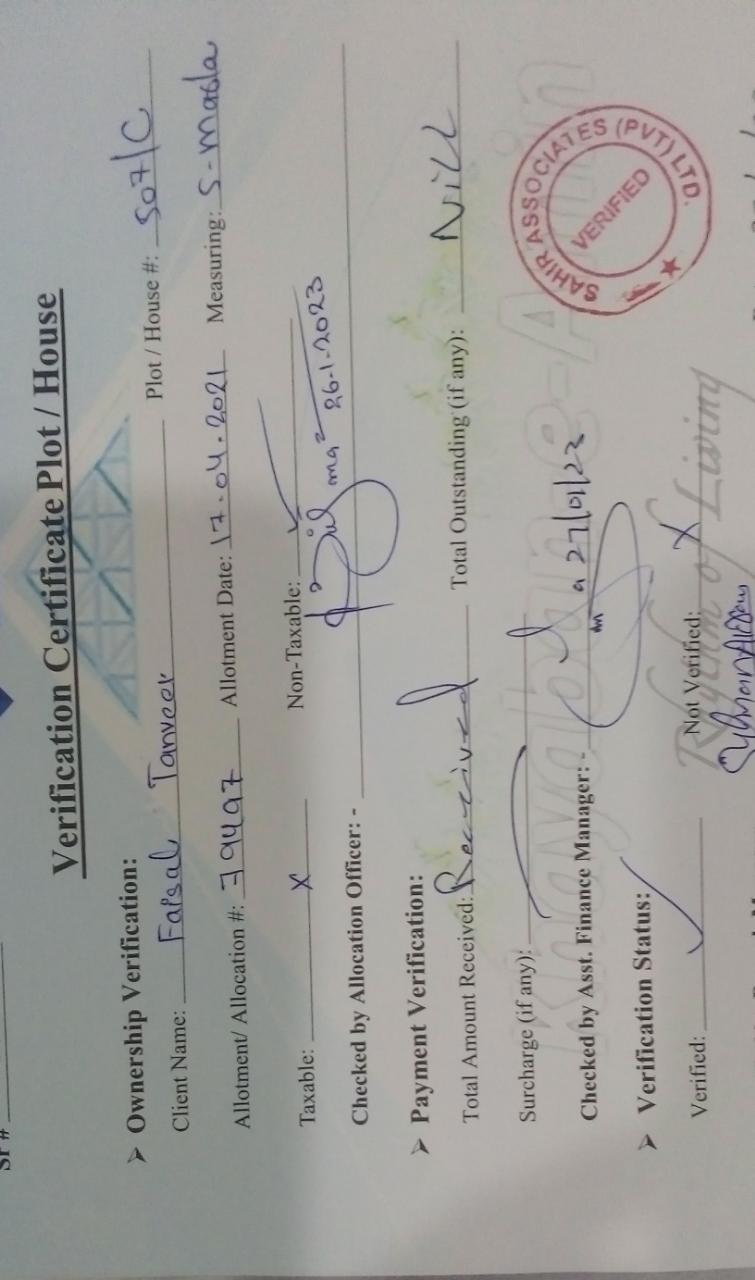 SF#
Verification Certificate Plot / House
➤ Ownership Verification:
Client Name: Faisal Tanveer Plot / House #: 507/C
Allotment/ Allocation #: 39497 Allotment Date: 17.04.2021 Measuring: 5-Marla
Taxable: X Non-Taxable: ✓
26-1-2023
Checked by Allocation Officer: -
➤ Payment Verification:
Total Amount Received: Received Total Outstanding (if any): Nill
Surcharge (if any):
Checked by Asst. Finance Manager: - 27/01/23
➤ Verification Status:
Verified: ✓ Not Verified: X
SAHIR ASSOCIATES (PVT) LTD.
VERIFIED
Rhythm of Living